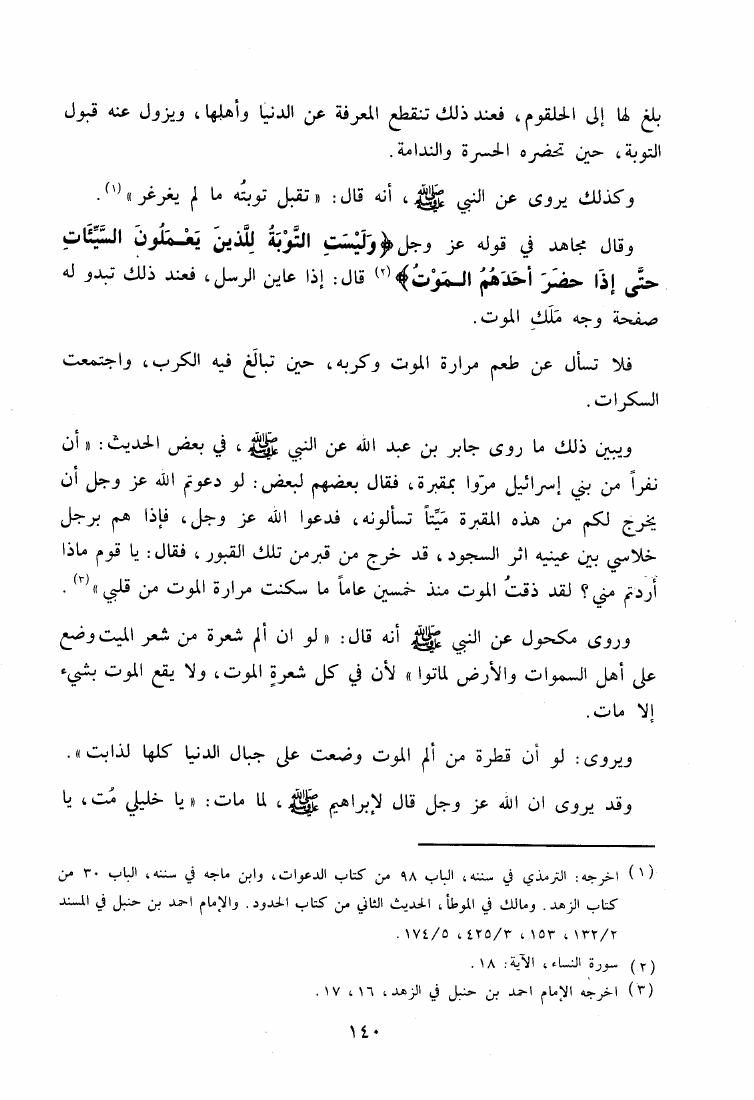 بلغ لها إلى الحلقوم، فعند ذلك تنقطع المعرفة عن الدنيا وأهلها، ويزول عنه قبول
التوبة، حين تحضره الحسرة والندامة.
وكذلك يروى عن النبي ﷺ، أنه قال: «تقبل توبتُه ما لم يغرغر»(١).
وقال مجاهد في قوله عز وجل ﴿وَلَيْسَتِ التَّوْبَةُ لِلَّذِينَ يَعْمَلُونَ السَّيِّئَاتِ
حتَّى إذَا حضَرَ أحَدَهُمُ المَوْتُ﴾(٢) قال: إذا عاين الرسل، فعند ذلك تبدو له
صفحة وجه مَلَكِ الموت.
فلا تسأل عن طعم مرارة الموت وكربه، حين تبالَغ فيه الكرب، واجتمعت
السكرات.
ويبين ذلك ما روى جابر بن عبد الله عن النبي ﷺ، في بعض الحديث: «أن
نفراً من بني إسرائيل مرّوا بمقبرة، فقال بعضهم لبعض: لو دعوتم الله عز وجل أن
يخرج لكم من هذه المقبرة مَيِّتاً تسألونه، فدعوا الله عز وجل، فإذا هم برجل
خلاسي بين عينيه اثر السجود، قد خرج من قبر من تلك القبور، فقال: يا قوم ماذا
أردتم مني؟ لقد ذقتُ الموت منذ خمسين عاماً ما سكنت مرارة الموت من قلبي»(٣).
وروى مكحول عن النبي ﷺ أنه قال: «لو ان ألم شعرة من شعر الميت وضع
على أهل السموات والأرض لماتوا» لأن في كل شعرةٍ الموت، ولا يقع الموت بشيء
إلا مات.
ويروى: لو أن قطرة من ألم الموت وضعت على جبال الدنيا كلها لذابت».
وقد يروى ان الله عز وجل قال لإبراهيم ﷺ، لما مات: «يا خليلي مُت، يا
(١) اخرجه: الترمذي في سننه، الباب ٩٨ من كتاب الدعوات، وابن ماجه في سننه، الباب ٣٠ من
كتاب الزهد. ومالك في الموطأ، الحديث الثاني من كتاب الحدود. والإمام احمد بن حنبل في المسند
١٣٢/٢، ١٥٣، ٤٢٥/٣، ١٧٤/٥.
(٢) سورة النساء، الآية: ١٨.
(٣) اخرجه الإمام احمد بن حنبل في الزهد، ١٦، ١٧.
١٤٠